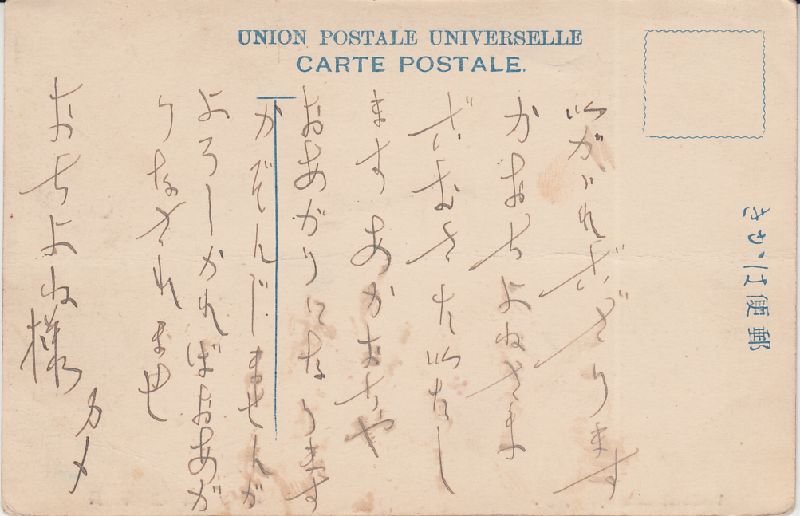 UNION POSTALE UNIVERSELLE
CARTE POSTALE.
郵便はがき
ござります
かおちよねさま
ます あかおちや
おあがりになります
かぞんじませんが
よろしかればおあが
りなされませ
おちよね様
カメ